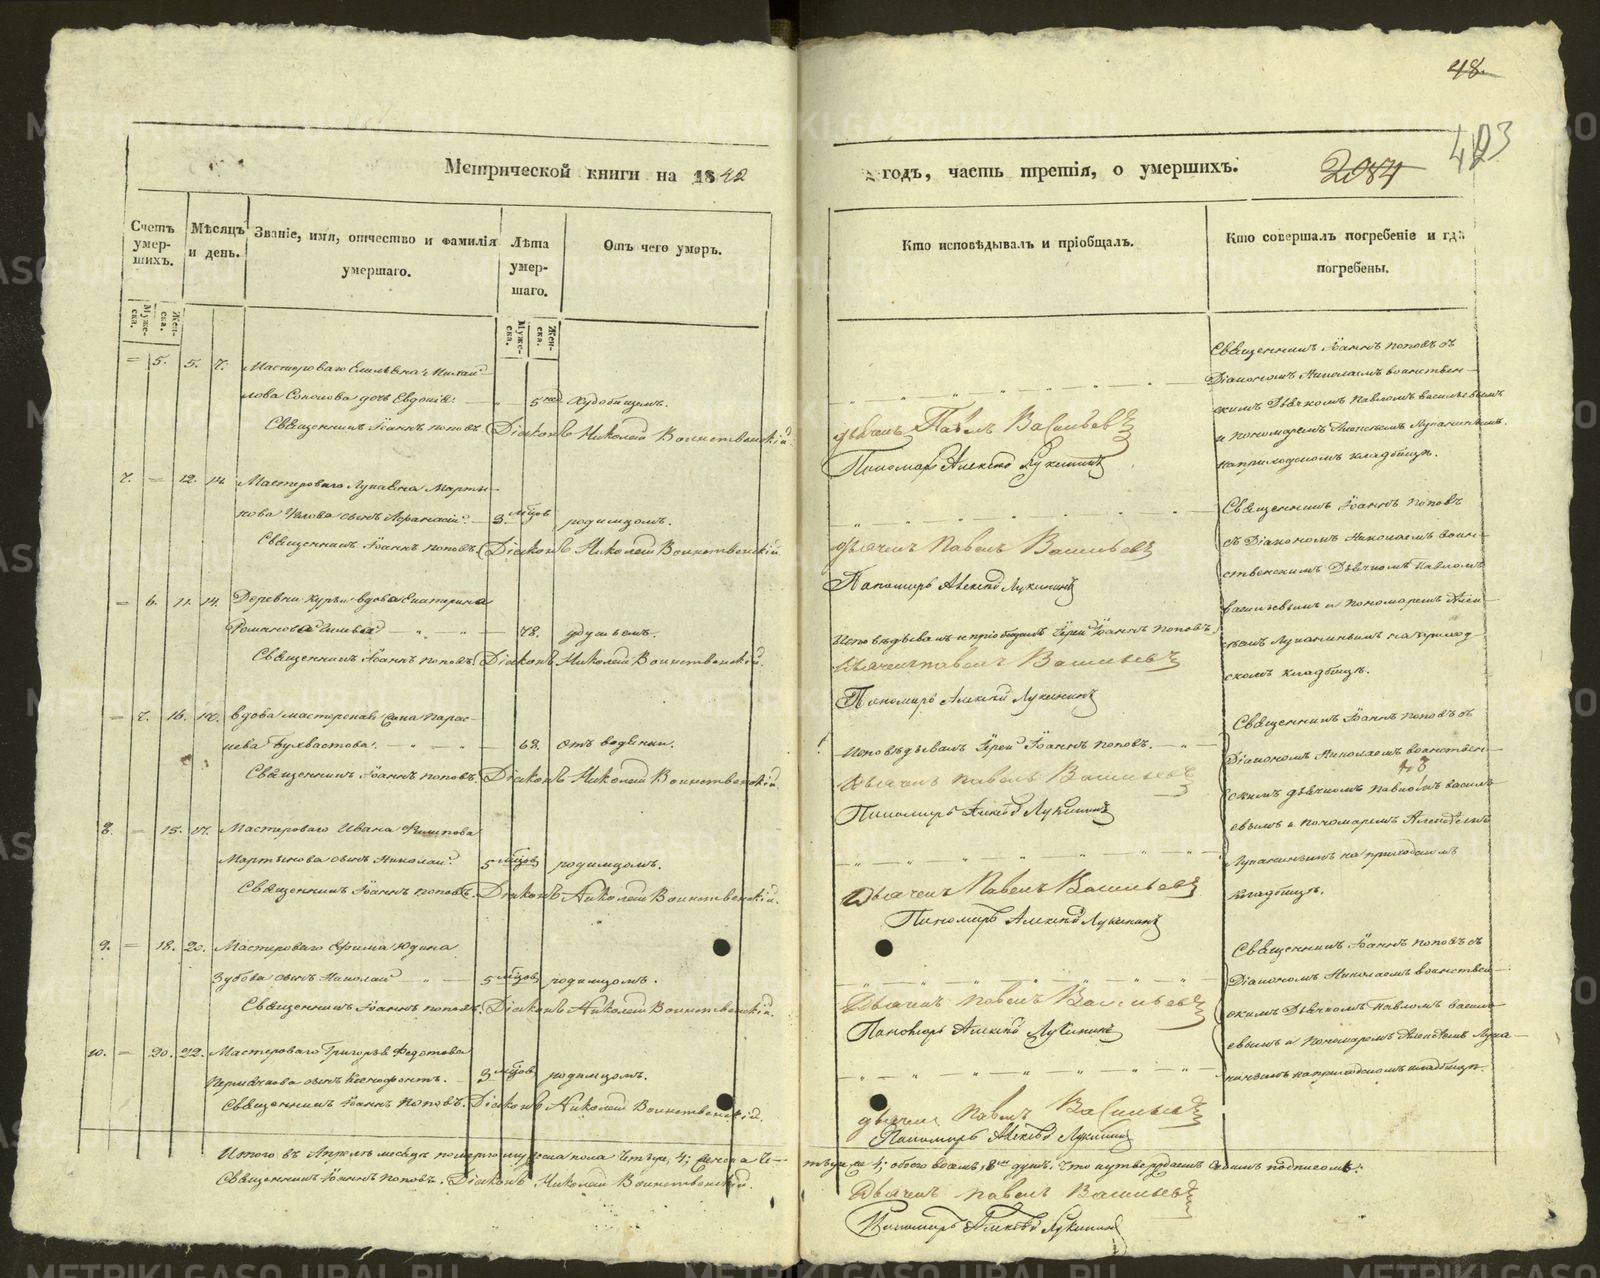 48.
403
2084
Метрической книги на 1842
годъ, часть третія, о умершихъ.
Счетъ умер-шихъ.
Мѣсяцъ и день.
Званіе, имя, отчество и фамилія умершаго.
Лѣта умер-шаго.
Отъ чего умеръ.
Кто исповѣдывалъ и пріобщалъ.
Кто совершалъ погребеніе и гдѣ погребены.
Муже-ска.
Жен-ска.
Муже-ска.
Жен-ска.
5. 5. 7. Мастероваго Михай-
лова дочь Евдокія. 5
Священникъ Іоаннъ Поповъ. Діаконъ Николай Воинственскій.
Дьячекъ Павелъ Васильевъ
Пономарь Алексѣй Лукининъ
Священникъ Іоаннъ Поповъ съ
Діакономъ Николаемъ Воинствен-
скимъ Дьячкомъ Павломъ Васильевымъ
и пономаремъ Алексѣемъ Лукининымъ
на приходскомъ кладбищѣ.
7. 12. 14. Мастероваго Марты-
нова сынъ Афанасій. 3 мѣсяцовъ родимцомъ.
Священникъ Іоаннъ Поповъ. Діаконъ Николай Воинственскій.
Дьячекъ Павелъ Васильевъ
Пономарь Алексѣй Лукининъ
Священникъ Іоаннъ Поповъ
съ Діакономъ Николаемъ Воин-
ственскимъ Дьячкомъ Павломъ
Васильевымъ и пономаремъ Алек-
сѣемъ Лукининымъ на приход-
скомъ кладбищѣ.
6. 11. 14. Деревни вдова Екатерина
Романова 78.
Священникъ Іоаннъ Поповъ. Діаконъ Николай Воинственскій.
Исповѣдывалъ и пріобщалъ Іерей Іоаннъ Поповъ.
Дьячекъ Павелъ Васильевъ
Пономарь Алексѣй Лукининъ
7. 16. вдова мастерская
68. отъ водянки.
Священникъ Іоаннъ Поповъ. Діаконъ Николай Воинственскій.
Исповѣдывалъ Іерей Іоаннъ Поповъ.
Дьячекъ Павелъ Васильевъ
Пономарь Алексѣй Лукининъ
Священникъ Іоаннъ Поповъ съ
Діакономъ Николаемъ Воинствен-
скимъ дьячкомъ Павломъ Василь-
евымъ и пономаремъ Алексѣемъ
Лукининымъ на приходскомъ
кладбищѣ.
8. 15. 17. Мастероваго Ивана Филипова
Мартынова сынъ Николай. 5 мѣсяцовъ родимцомъ.
Священникъ Іоаннъ Поповъ. Діаконъ Николай Воинственскій.
Дьячекъ Павелъ Васильевъ
Пономарь Алексѣй Лукининъ
9. 18. 20. Мастероваго Ефима Юдина
Зубова сынъ Николай 5 мѣсяцовъ родимцомъ.
Священникъ Іоаннъ Поповъ. Діаконъ Николай Воинственскій.
Дьячекъ Павелъ Васильевъ
Пономарь Алексѣй Лукининъ
Священникъ Іоаннъ Поповъ съ
Діакономъ Николаемъ Воинствен-
скимъ Дьячкомъ Павломъ Василь-
евымъ и Пономаремъ Алексѣемъ Луки-
нинымъ на приходскомъ кладбищѣ.
10. 20. 22. Мастероваго Григорья Федотова
Пермякова сынъ Ксенофонтъ. 3 мѣсяцовъ родимцомъ.
Священникъ Іоаннъ Поповъ. Діаконъ Николай Воинственскій.
Дьячекъ Павелъ Васильевъ
Пономарь Алексѣй Лукининъ
Итого въ Апрелѣ месяцѣ померло мужеска пола четыре, 4; женска че-
тыре 4; обоего восемь, 8 душъ, что и утверждаемъ своимъ подписомъ:
Священникъ Іоаннъ Поповъ. Діаконъ Николай Воинственскій.
Дьячекъ Павелъ Васильевъ
Пономарь Алексѣй Лукининъ
METRIKI.GASO-URAL.RU